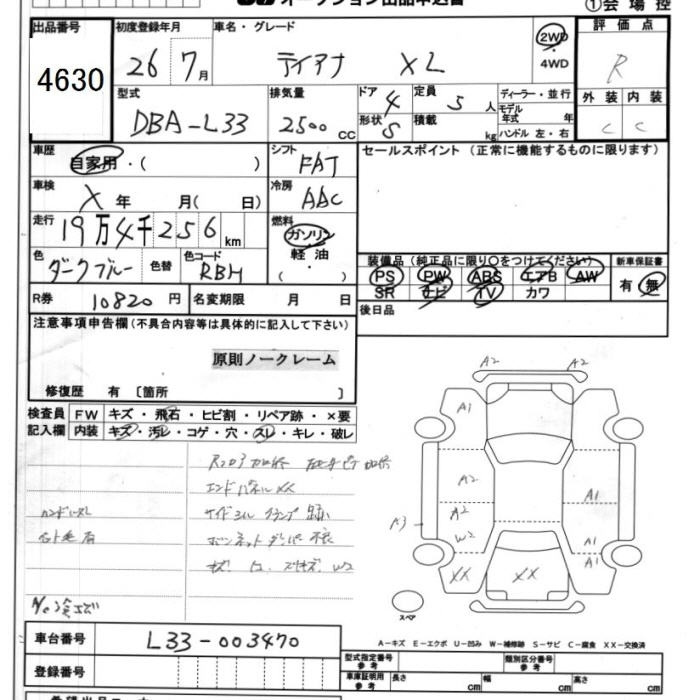 オークション出品申込書
①会場控
出品番号 初度登録年月 車名・グレード 2WD・4WD 評価点
4630 26 7月 ティアナ XL R
型式 排気量 ドア 4 定員 5 人 ディーラー・並行 外装 内装
DBA-L33 2500 cc 形状 S 積載 kg モデル年式 年 ハンドル 左・右 C C
車歴 自家用・( ) シフト FAT セールスポイント (正常に機能するものに限ります)
車検 X 年 月( 日) 冷房 AAC
走行 19万4千256km 燃料 ガソリン 軽油・( )
色 ダークブルー 色替 色コード RBM
装備品 (純正品に限り○をつけてください) 新車保証書
PS PW ABS エアB AW 有 無
SR ナビ TV カワ
R券 10820 円 名変期限 月 日 後日品
注意事項申告欄 (不具合内容等は具体的に記入して下さい)
原則ノークレーム
修復歴 有 〔箇所 〕
検査員 FW キズ・飛石・ヒビ割・リペア跡・×要
記入欄 内装 キズ・汚レ・コゲ・穴・スレ・キレ・破レ
エンドパネルXX
ハンドルスレ サイドシル クランプ
ボンネットダンパー
A2 A2
A1
A2 A1
A2
A3 W2 A1
A1
XX XX
スペア
A-キズ E-エクボ U-凹み W-補修跡 S-サビ C-腐食 XX-交換済
車台番号 L33-003470
登録番号
型式指定番号 参考 類別区分番号 参考
車庫証明用 参考 長さ cm 幅 cm 高さ cm